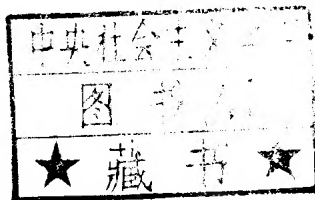 中央社会主义
图书
★ 藏书 ★